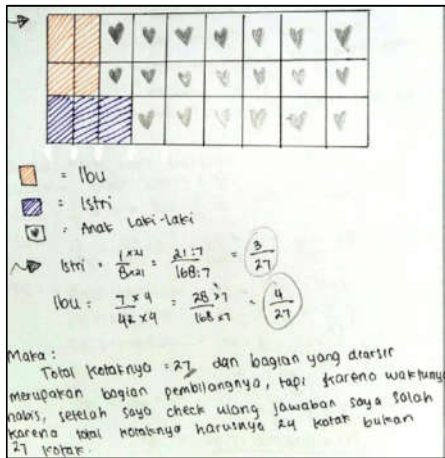 = Ibu
= Istri
= Anak Laki-Laki
Istri = 1 x 21 / 8 x 21 = 21 : 7 / 168 : 7 = 3 / 27
Ibu = 7 x 4 / 42 x 4 = 28 : 7 / 168 x 7 = 4 / 27
Maka :
Total kotaknya = 27, dan bagian yang diarsir
merupakan bagian pembilangnya, tapi karena waktunya
habis, setelah saya check ulang jawaban saya salah
karena total kotaknya harusnya 24 kotak bukan
27 kotak.